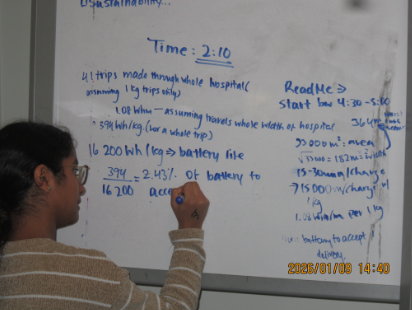 Sustainability...
Time: 2:10
41 trips made through whole hospital (
assuming 1 kg trips only)
1.08 Whm — assuming travels whole width of hospital
= 394 Wh/kg (for a whole trip)
16 200 Wh/kg => battery life
394
16 200
= 2.43% of battery to
acce
ReadMe =>
start bw 4:30-5:00
364m
33000 m² = area
√33000 = 182m = width
15-30min/charge
→ 15000m/charge w/
1kg
1.08Wh/m per 1kg
battery to accept
delivery.
2026/01/09 14:40